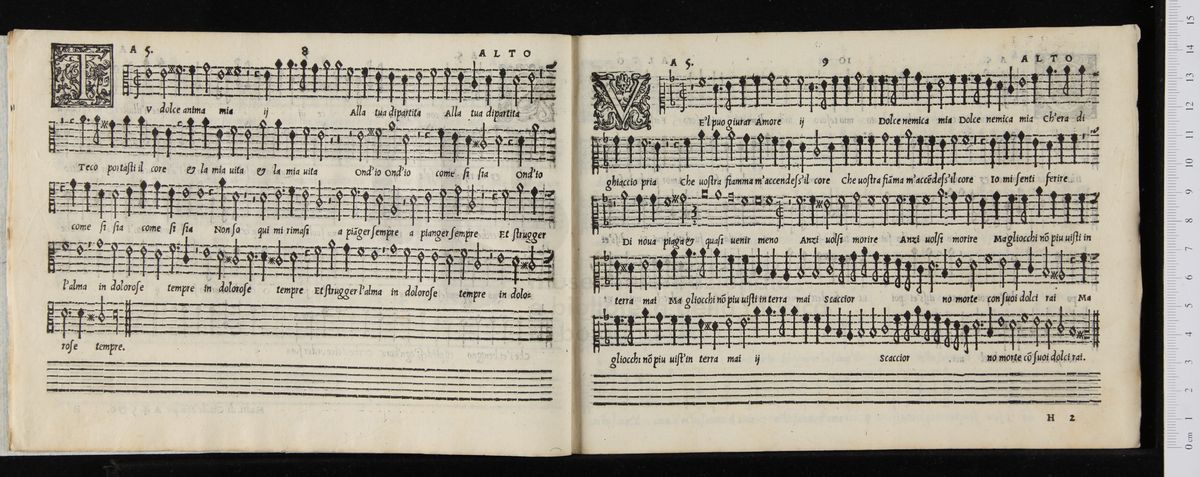 A 5. 8 ALTO
TV dolce anima mia ij Alla tua dipartita Alla tua dipartita
Teco portasti il core & la mia uita & la mia uita Ond'io Ond'io come si sia Ond'io
come si sia come si sia Non so qui mi rimasi a piãger sempre a pianger sempre Et strugger
l'alma in dolorose tempre in dolorose tempre Et strugger l'alma in dolorose tempre in dolo=
rose tempre.
A 5. 9 ALTO
VE'l puo giurar Amore ij Dolce nemica mia Dolce nemica mia Ch'era di
ghiaccio pria Che uostra fiamma m'accendess'il core Che uostra fiãma m'accẽdess'il core Io mi senti ferire
Di noua piaga & quasi uenir meno Anzi uolsi morire Anzi uolsi morire Ma gliocchi nõ piu uisti in
terra mai Ma gliocchi nõ piu uisti in terra mai Scaccior no morte con suoi dolci rai Ma
gliocchi nõ piu uist'in terra mai ij Scaccior no morte cõ suoi dolci rai.
H 2
15
14
13
12
11
10
9
8
7
6
5
4
3
2
1
0 cm